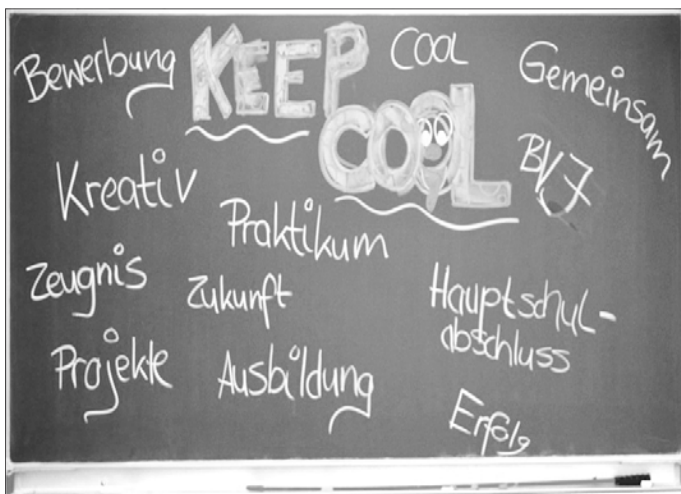 Bewerbung
KEEP
COOL
COOL
Gemeinsam
BVJ
Kreativ
Praktikum
Zeugnis
Zukunft
Hauptschul-
abschluss
Projekte
Ausbildung
Erfolg